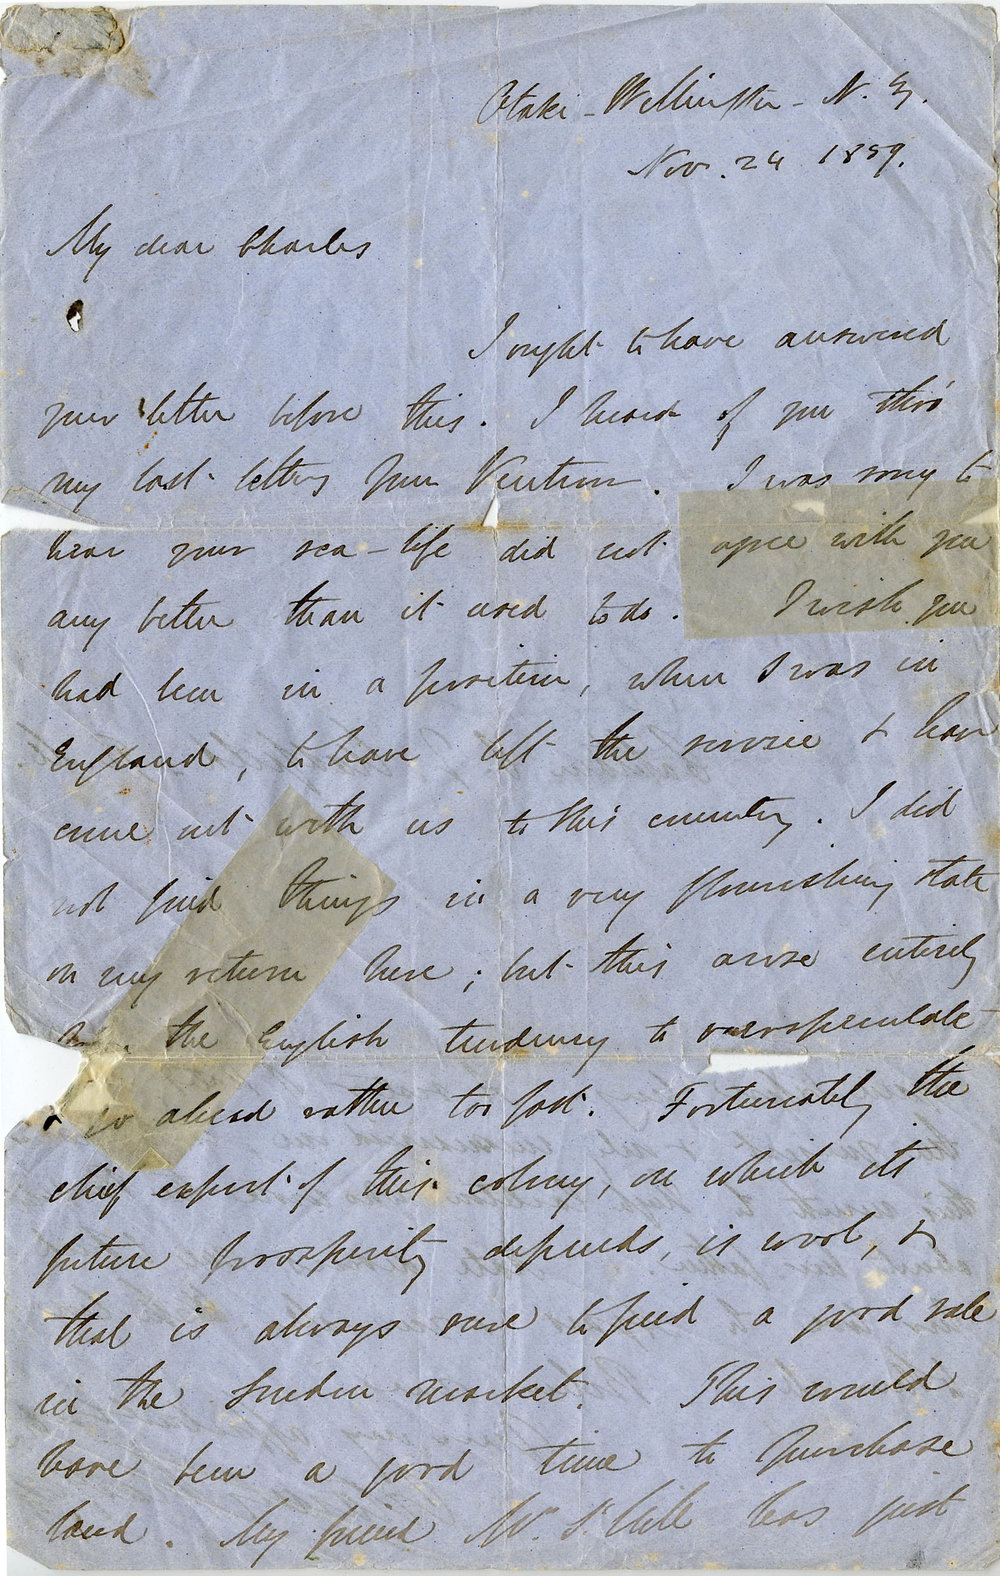 Otaki - Wellington - N. Z.
Nov. 24 1859.
My dear Charles
I ought to have answered
your letter before this. I heard of you thro'
my last letters from Ventnor. I was sorry to
hear your sea-life did not agree with you
any better than it used to do. I wish you
had been in a position, when I was in
England, to have left the service & have
come out with us to this country. I did
not find things in a very flourishing state
on my return here; but this arose entirely
the English tendency to overspeculate
go ahead rather too fast. Fortunately the
chief export of this colony, on which its
future prosperity depends, is wool, &
that is always sure to find a good sale
in the London market. This would
have been a good time to purchase
land. My friend Mr. St. Hill has just